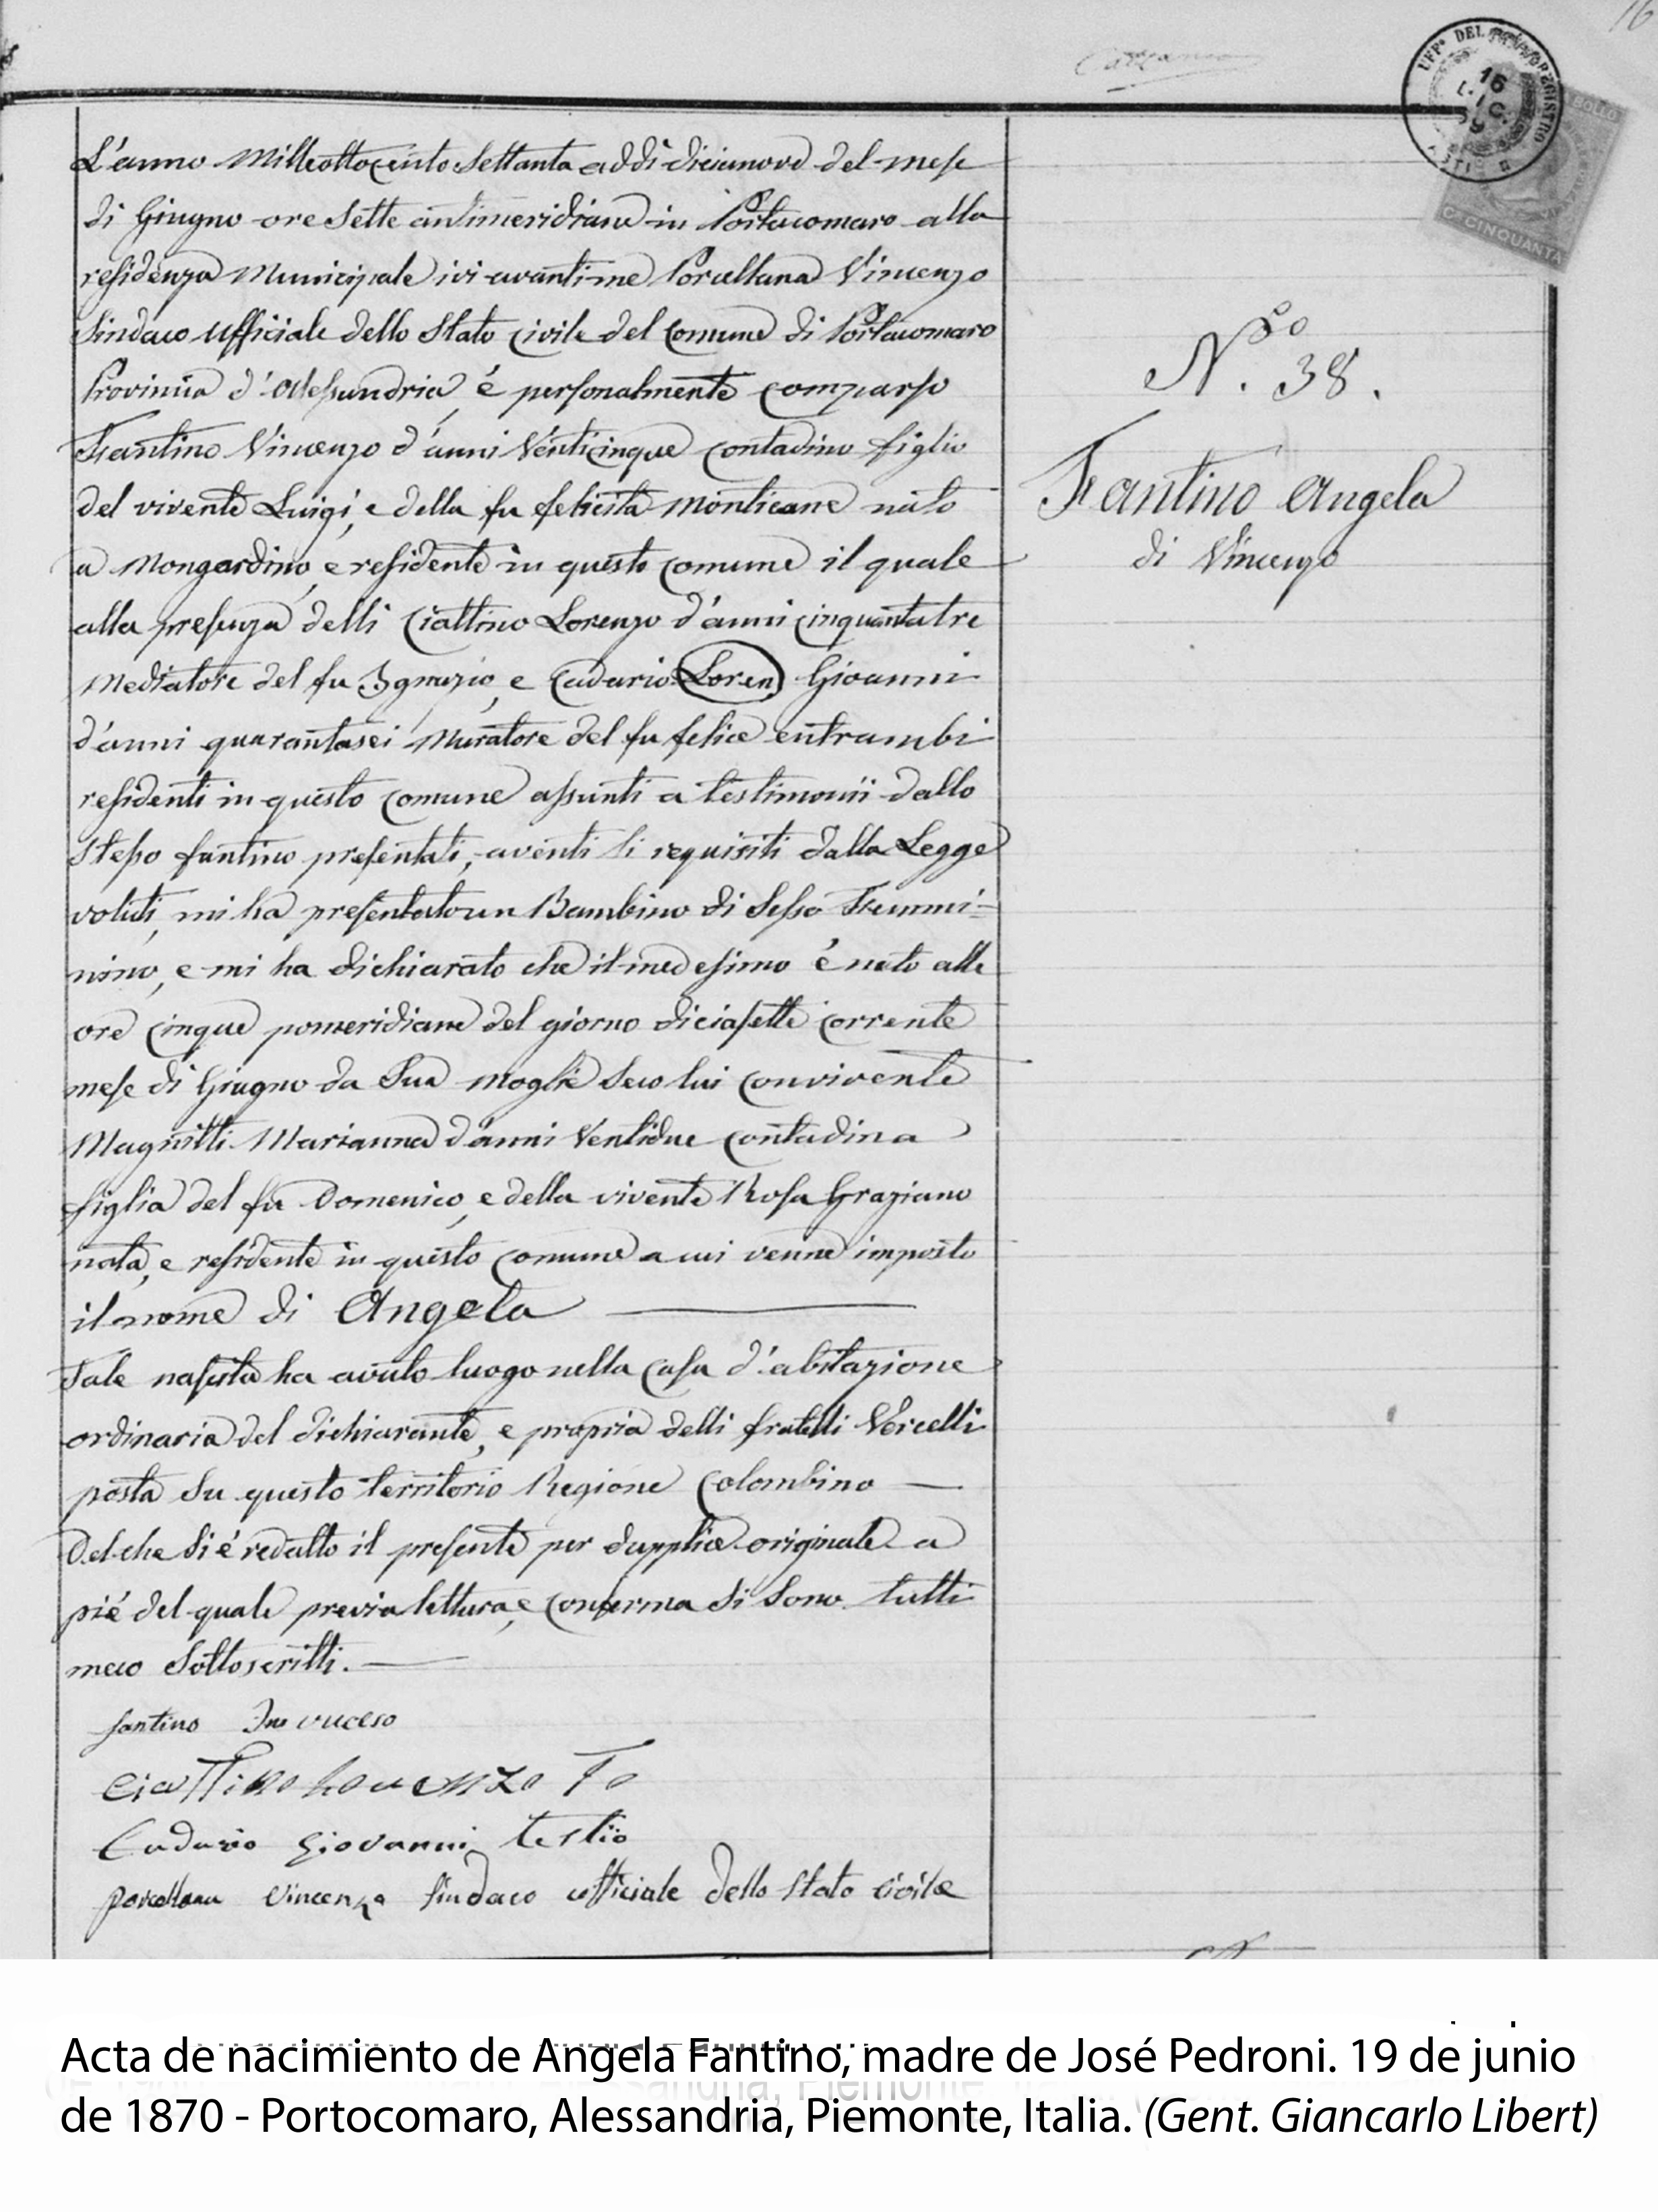 16
UFF° DEL REGISTRO
ASTI
BOLLO
C. CINQUANTA
L'anno Milleottocento Settanta addi diciannove del mese
di Giugno ore Sette antimeridiane in Portacomaro alla
residenza Municipale ivi avanti me Porcellana Vincenzo
Sindaco Ufficiale dello Stato Civile del Comune di Portacomaro
Provincia d'Alessandria è personalmente comparso
Fantino Vincenzo d'anni Venticinque contadino figlio
del vivente Luigi, e della fu felicita Monticane nato
a Mongardino, e residente in questo comune il quale
alla presenza delli Ciattino Lorenzo d'anni cinquantatre
Mediatore del fu Ignazio, e Cadario Loren Giovanni
d'anni quarantasei Muratore del fu felice entrambi
residenti in questo comune assunti a testimonii dallo
Stesso fantino presentati, aventi li requisiti dalla Legge
voluti, mi ha presentato un Bambino di Sesso Femmi-
nino, e mi ha dichiarato che il medesimo è nato alle
ore cinque pomeridiane del giorno diciasette corrente
mese di Giugno da Sua moglie Seco lui convivente
Magnitti Marianna d'anni Ventidue contadina
figlia del fu Domenico, e della vivente Rosa Graziano
nata, e residente in questo comune a cui venne imposto
il nome di Angela
Tale nascita ha avuto luogo nella casa d'abitazione
ordinaria del dichiarante, e propria delli fratelli Vercelli
posta su questo territorio Regione Colombino
Del che Si è redatto il presente per dupplice originale a
piè del quale previa lettura, e conferma Si Sono tutti
meco Sottoscritti.
fantino
Ciattino Lorenzo To
Cadario Giovanni testio
Porcellana Vincenzo Sindaco ufficiale dello Stato Civile
N. 38.
Fantino Angela
di Vincenzo
Acta de nacimiento de Angela Fantino, madre de José Pedroni. 19 de junio
de 1870 - Portocomaro, Alessandria, Piemonte, Italia. (Gent. Giancarlo Libert)